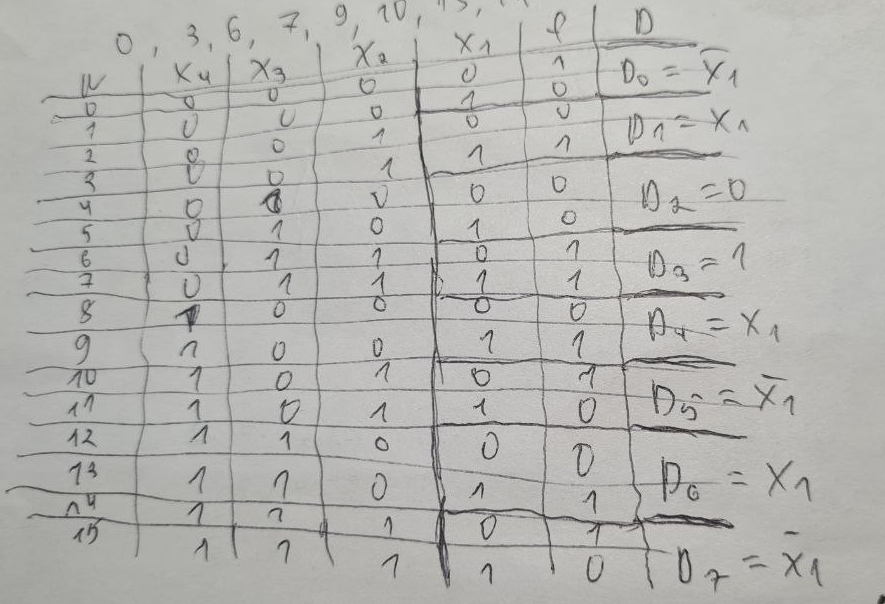 0, 3, 6, 7, 9, 10, 13,
N X4 X3 X2 X1 f D
0 0 0 0 0 1 D0 = X̄1
1 0 0 0 1 0
2 0 0 1 0 0 D1 = X1
3 0 0 1 1 1
4 0 1 0 0 0 D2 = 0
5 0 1 0 1 0
6 0 1 1 0 1 D3 = 1
7 0 1 1 1 1
8 1 0 0 0 0 D4 = X1
9 1 0 0 1 1
10 1 0 1 0 1 D5 = X̄1
11 1 0 1 1 0
12 1 1 0 0 0 D6 = X1
13 1 1 0 1 1
14 1 1 1 0 1 D7 = X̄1
15 1 1 1 1 0